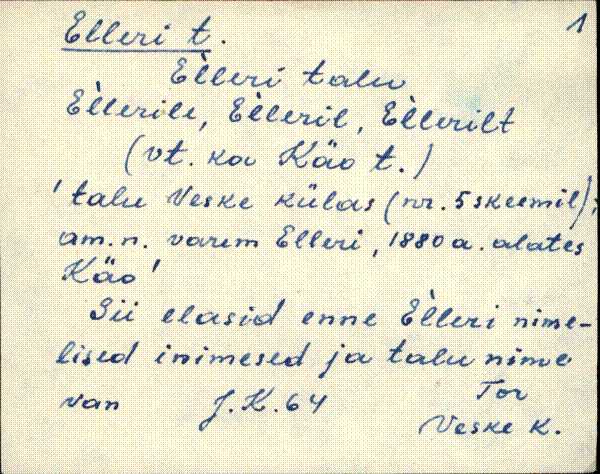 Elleri t. 1
Èlleri talu
Èllerile, Èlleril, Èllerilt
(vt. ka Käo t.)
'talu Veske külas (nr. 5 skeemil);
am. n. varem Elleri, 1880 a. alates
Käo'
Sii elasid enne Èlleri nime-
lised inimesed ja talu nime
van J. K. 64 Tor
Veske k.